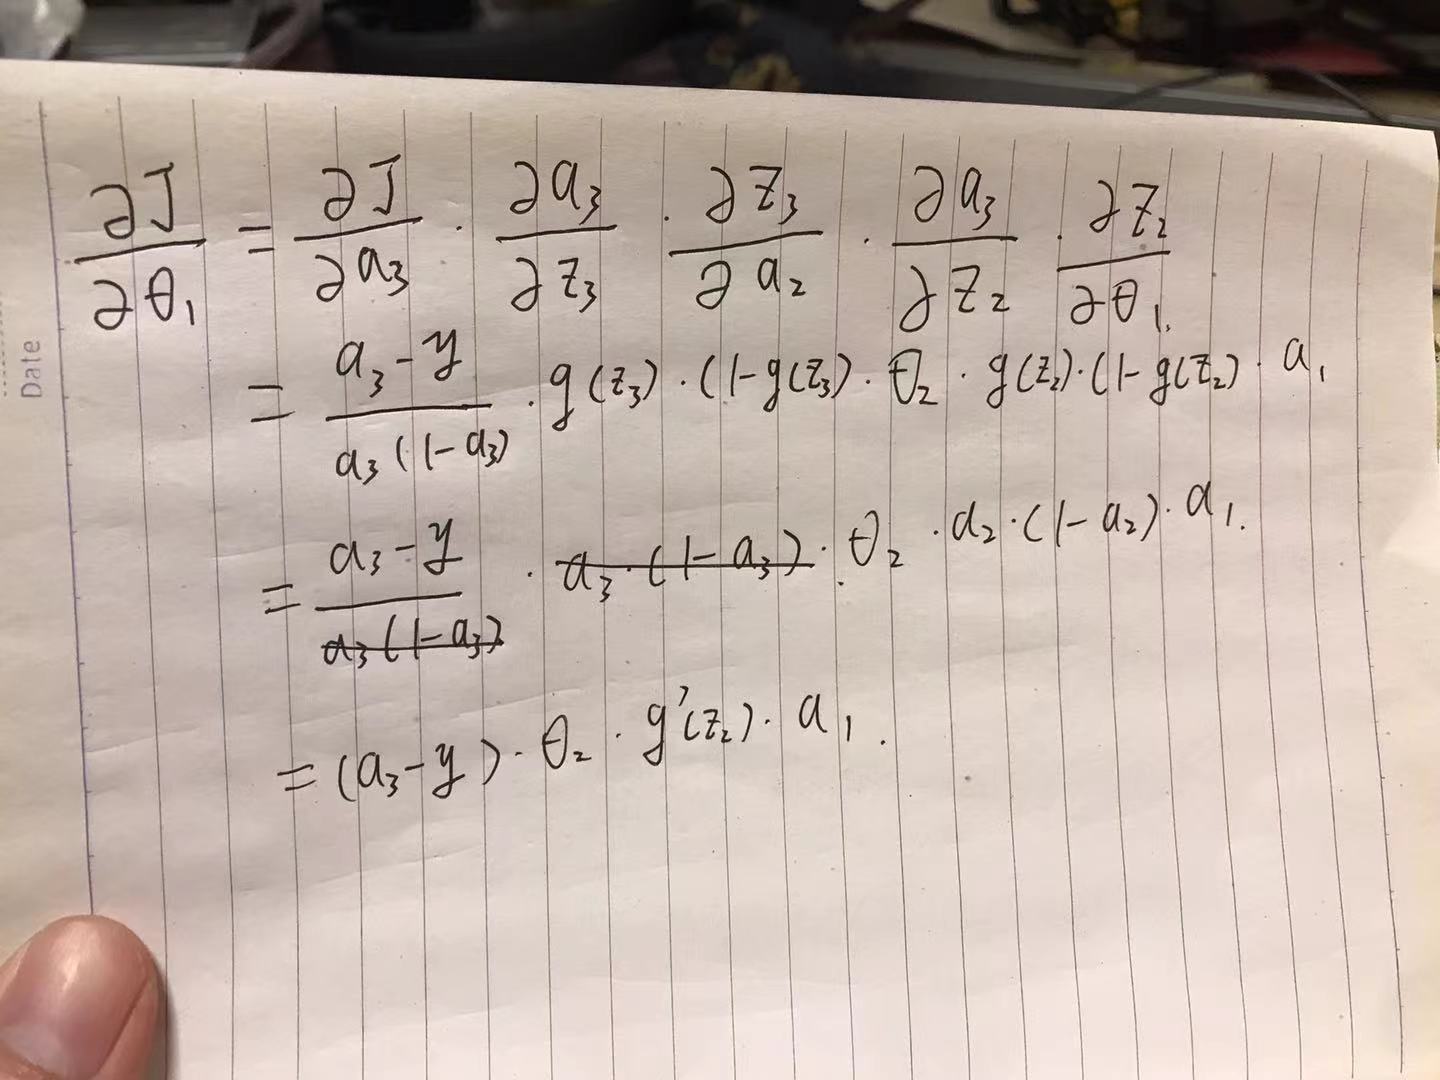 ∂J/∂θ₁ = ∂J/∂a₃ · ∂a₃/∂z₃ · ∂z₃/∂a₂ · ∂a₃/∂z₂ · ∂z₂/∂θ₁
= (a₃-y)/(a₃(1-a₃)) · g(z₃)·(1-g(z₃)·θ₂·g(z₂)·(1-g(z₂)·a₁
= (a₃-y)/(a₃(1-a₃)) · a₃·(1-a₃)·θ₂·a₂·(1-a₂)·a₁.
= (a₃-y)·θ₂·g'(z₂)·a₁.
Date